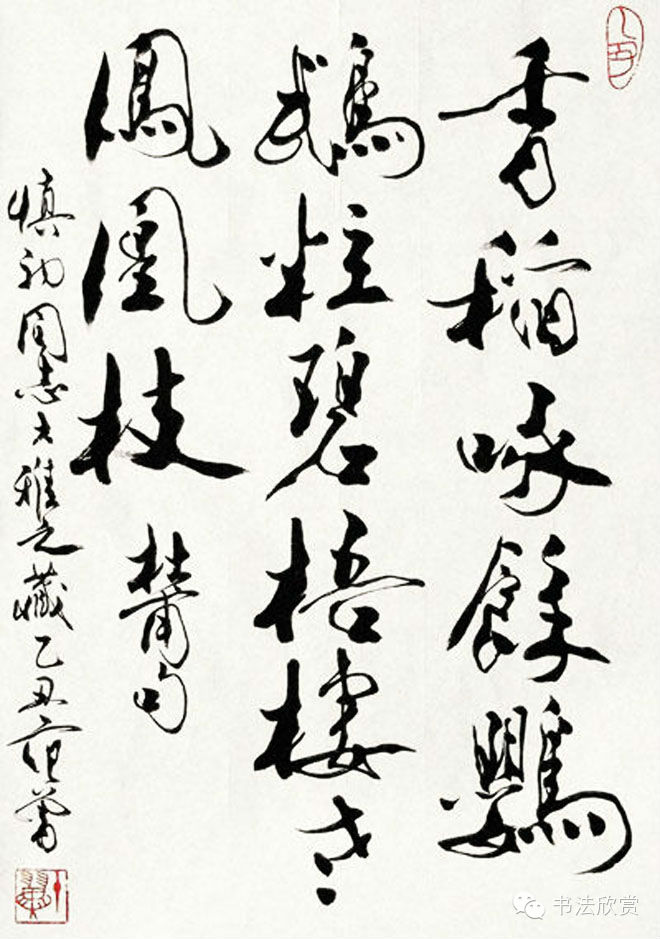 香稻啄餘鸚
鵡粒碧梧棲老
鳳凰枝 杜甫句
慎初同志大雅之藏乙丑范曾
书法欣赏